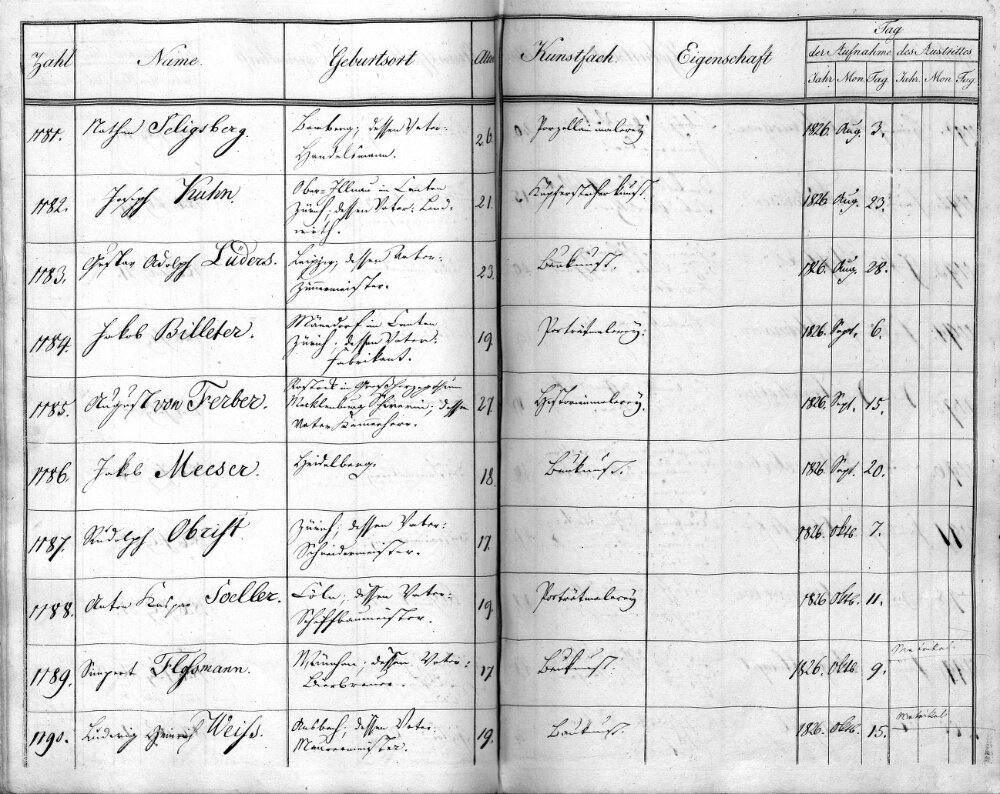 Zahl Name. Geburtsort Alter Kunstfach Eigenschaft Tag
der Aufnahme des Austrittes
Jahr Mon Tag Jahr. Mon Tag
1181. Nathan Seligsberg. Bamberg; dessen Vater: 26. Porzellainmalerey 1826 Aug. 3.
Handelsmann.
1182. Joseph Kuhn. Ober-Illnau in Canton 21. Kupferstecherkunst. 1826 Aug. 23.
Zürich; dessen Vater: Land-
wirth.
1183. Gustav Adolph Lüders. Leipzig, dessen Vater: 23. Baukunst. 1826. Aug. 28.
Zimmermeister.
1184. Jakob Billeter. Mändorf in Canton 19. Porträtmalerey. 1826. Sept. 6.
Zürich; dessen Vater:
Fabrikant.
1185. August von Ferber. Rostock in Großherzogthum 21. Historienmalerey. 1826. Sept. 15.
Mecklenburg Schwerin; dessen
Vater Kammerherr.
1186. Jakob Meeser. Heidelberg. 18. Baukunst. 1826 Sept. 20.
1187. Rudolph Obrist. Zürich; dessen Vater: 17. 1826. Oktb. 7.
Schneidermeister.
1188. Anton Kaspar Soeller. Cöln; dessen Vater: 19. Porträtmalerey 1826 Oktb. 11.
Schiffbaumeister.
1189. Simpert Flossmann. München; dessen Vater: 17. Baukunst. 1826. Oktb. 9. Matrikel
Bierbrauer.
1190. Ludwig Heinrich Weiss. Ansbach; dessen Vater: 19. Baukunst. 1826. Oktb. 15. Matrikel
Maurermeister.